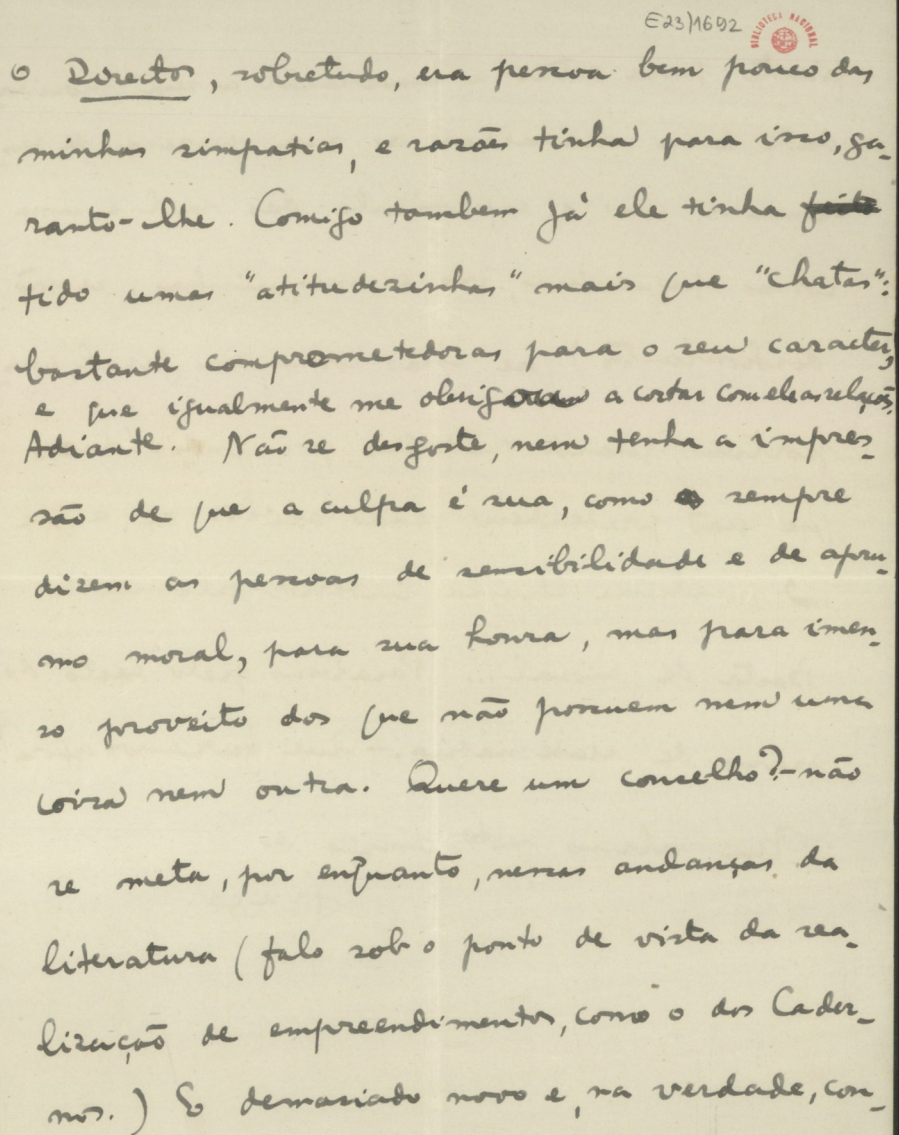 E23/1692
BIBLIOTECA NACIONAL
o Director, sobretudo, era pessoa bem pouco das
minhas simpatias, e razões tinha para isso, ga-
ranto-lhe. Comigo tambem já ele tinha feito
tido umas "atitudezinhas" mais que "chatas":
bastante comprometedoras para o seu caracter,
e que igualmente me obrigaram a cortar com ele as relações.
Adiante. Não se desgoste, nem tenha a impres-
são de que a culpa é sua, como sempre
dizem as pessoas de sensibilidade e de apru-
mo moral, para sua honra, mas para imen-
so proveito dos que não possuem nem uma
coisa nem outra. Quere um conselho? - não
se meta, por enquanto, nessas andanças da
literatura (falo sob o ponto de vista da rea-
lização de empreendimentos, como o dos Cader-
nos.) É demasiado novo e, na verdade, con-